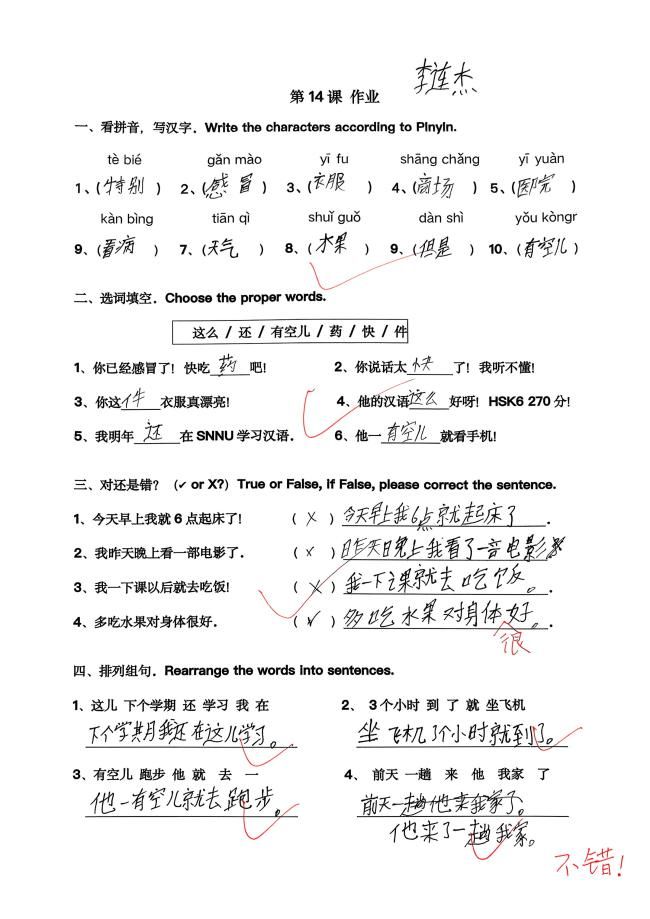 李连杰
第 14 课 作业
一、看拼音，写汉字．Write the characters according to Pinyin.
tè bié gǎn mào yī fu shāng chǎng yī yuàn
1、(特别) 2、(感冒) 3、(衣服) 4、(商场) 5、(医院)
kàn bìng tiān qì shuǐ guǒ dàn shì yǒu kòngr
9、(看病) 7、(天气) 8、(水果) 9、(但是) 10、(有空儿)
二、选词填空．Choose the proper words.
这么 / 还 / 有空儿 / 药 / 快 / 件
1、你已经感冒了！快吃药吧！ 2、你说话太快了！我听不懂！
3、你这件衣服真漂亮！ 4、他的汉语这么好呀！HSK6 270 分！
5、我明年还在 SNNU 学习汉语． 6、他一有空儿就看手机！
三、对还是错？（✔ or X?）True or False, if False, please correct the sentence.
1、今天早上我就 6 点起床了！ （ X ） 今天早上我6点就起床了．
2、我昨天晚上看一部电影了． （ X ） 昨天晚上我看了一部电影
3、我一下课以后就去吃饭！ （ X ） 我一下课就去吃饭。．
4、多吃水果对身体很好． （ ✓ ） 多吃水果对身体好。．
很
四、排列组句．Rearrange the words into sentences.
1、这儿 下个学期 还 学习 我 在 2、 3 个小时 到 了 就 坐飞机
下个学期我还在这儿学习。 坐飞机3个小时就到了。
3、有空儿 跑步 他 就 去 一 4、 前天 一趟 来 他 我家 了
他一有空儿就去跑步。 前天一趟他来我家了。
他来了一趟我家。
不错！